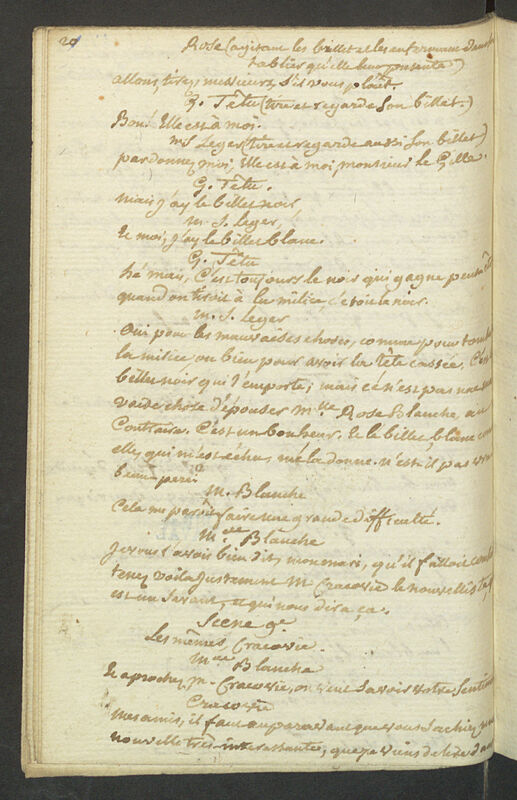 20
Rose (agitant les billet et les enfermant dans
tablier qu'elle leur presente)
allons tirez, messieurs, s'il vous plaît.
G. Têtu (tire et regarde son billet.)
Bon! Elle est à moi.
Mr Leger (tire et regarde aussi son billet)
pardonnez moi, Elle est à moi, monsieur le Gille.
G. Têtu.
mais j'ay le billet noir
M. S. Leger,
Et moi, j'ay le billet blanc.
G. Têtu
hé mais, C'est toujours le noir qui gagne
quand on tiroit à la milice, c'etoit le noir.
M. S. Leger
Oui pour les mauvaises choses, comme pour tomber
la milice ou bien pour avoir la Tête cassée, C'est
billet noir qui l'emporte; mais ce n'est pas
vaise chose d'épouser Mlle Rose Blanche, au
Contraire. C'est un bonheur. Et le billet blanc
elle, qui m'est échu, me la donne. n'est-il pas vrai
beau-pere?
M. Blanche
Cela me paroît faire une grande difficulté.
Mme Blanche
Je vous l'avois bien dit, mon mari, qu'il falloit
tenez voila justement Mr Cracovie le nouvelliste,
est un savant, et qui nous dira ça.
Scene 9e
Les mêmes, Cracovie.
Mme Blanche
Et aprochez, M. Cracovie, on veut savoir votre Sentiment
Cracovie
Mes amis, il faut auparavant que vous sachiez une
nouvelle très-interessante, que je viens de lire dans